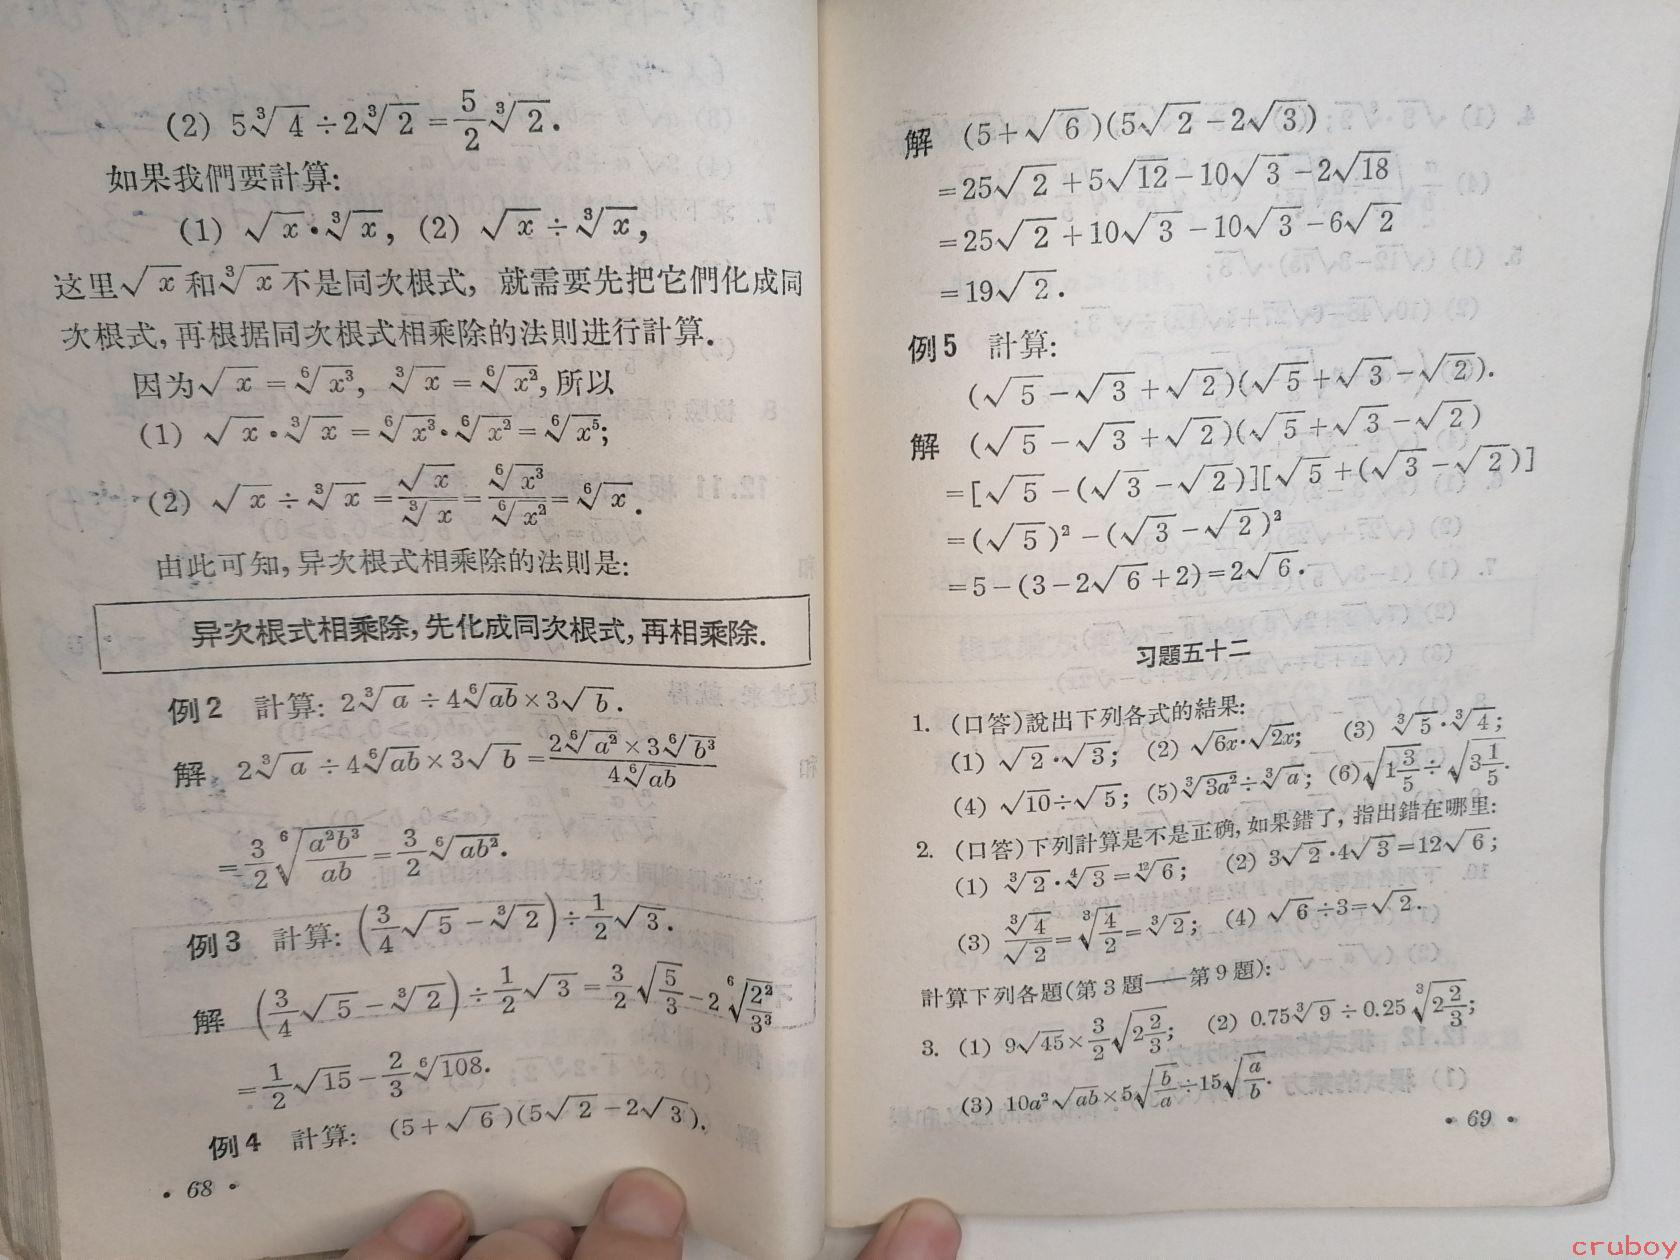 (2) 5∛4÷2∛2=5/2∛2.
如果我們要計算:
(1) √x·∛x, (2) √x÷∛x,
这里√x和∛x不是同次根式, 就需要先把它們化成同
次根式,再根据同次根式相乘除的法則进行計算.
因为√x=⁶√x³, ∛x=⁶√x²,所以
(1) √x·∛x=⁶√x³·⁶√x²=⁶√x⁵;
(2) √x÷∛x=√x/∛x=⁶√x³/⁶√x²=⁶√x.
由此可知,异次根式相乘除的法則是:
异次根式相乘除,先化成同次根式,再相乘除.
例2 計算: 2∛a÷4⁶√(ab)×3√b.
解 2∛a÷4⁶√(ab)×3√b=(2⁶√a²×3⁶√b³)/(4⁶√(ab))
=3/2⁶√(a²b³/ab)=3/2⁶√(ab²).
例3 計算: (3/4√5-∛2)÷1/2√3.
解 (3/4√5-∛2)÷1/2√3=3/2√(5/3)-2⁶√(2²/3³)
=1/2√15-2/3⁶√108.
例4 計算: (5+√6)(5√2-2√3).
· 68 ·
解 (5+√6)(5√2-2√3)
=25√2+5√12-10√3-2√18
=25√2+10√3-10√3-6√2
=19√2.
例5 計算:
(√5-√3+√2)(√5+√3-√2).
解 (√5-√3+√2)(√5+√3-√2)
=[√5-(√3-√2)][√5+(√3-√2)]
=(√5)²-(√3-√2)²
=5-(3-2√6+2)=2√6.
习題五十二
1. (口答)說出下列各式的結果:
(1) √2·√3; (2) √6x·√2x; (3) ∛5·∛4;
(4) √10÷√5; (5)∛3a²÷∛a; (6)√(1 3/5)÷√(3 1/5).
2. (口答)下列計算是不是正确,如果錯了,指出錯在哪里:
(1) ∛2·⁴√3=¹²√6; (2) 3√2·4√3=12√6;
(3) ∛4/√2=∛(4/2)=∛2; (4) √6÷3=√2.
計算下列各題(第3題——第9題):
3. (1) 9√45×3/2√(2 2/3); (2) 0.75∛9÷0.25∛(2 2/3);
(3) 10a²√(ab)×5√(b/a)÷15√(a/b).
· 69 ·
cruboy